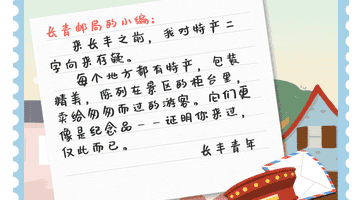 长青邮局的小编：
来长丰之前，我对特产二
字向来存疑。
每个地方都有特产，包装
精美，陈列在景区的柜台里，
卖给匆匆而过的游客。它们更
像是纪念品--证明你来过，
仅此而已。
长丰青年